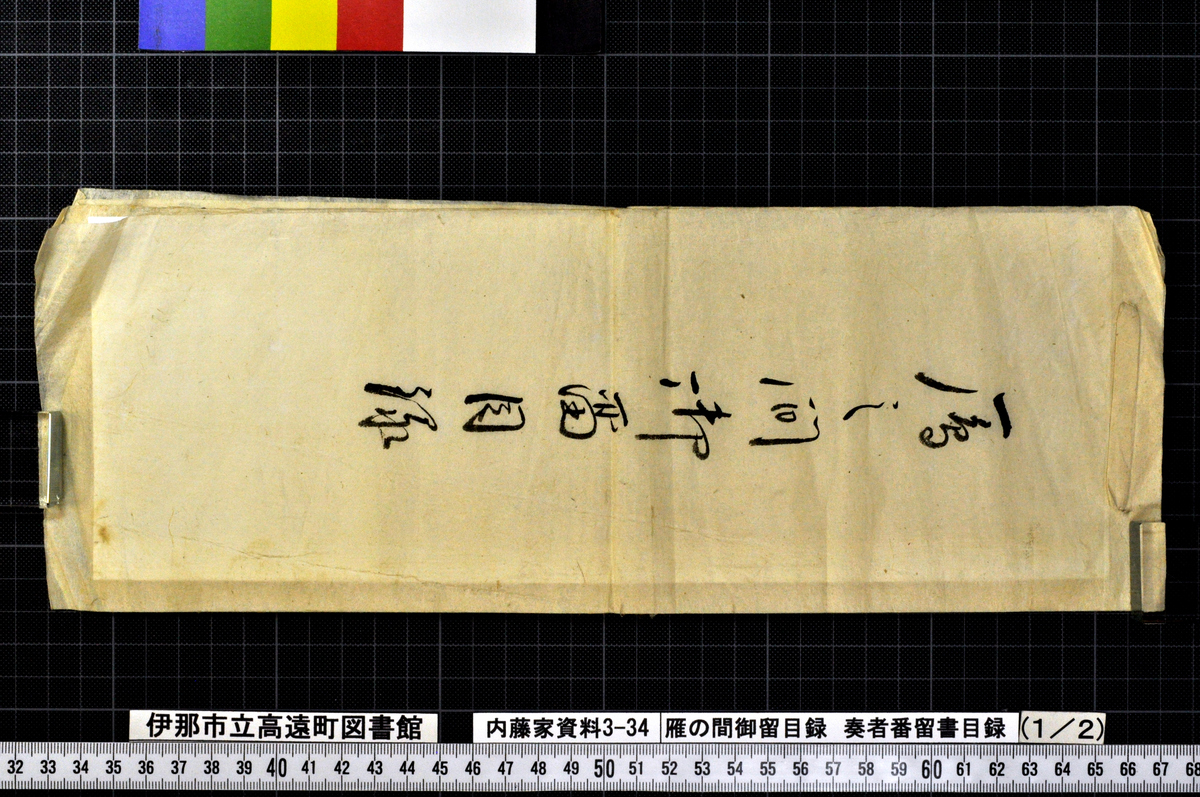 雁之間御留目録
伊那市立高遠町図書館
内藤家資料3-34 雁の間御留目録 奏者番留書目録 (1/2)
32 33 34 35 36 37 38 39 40 41 42 43 44 45 46 47 48 49 50 51 52 53 54 55 56 57 58 59 60 61 62 63 64 65 66 67 68